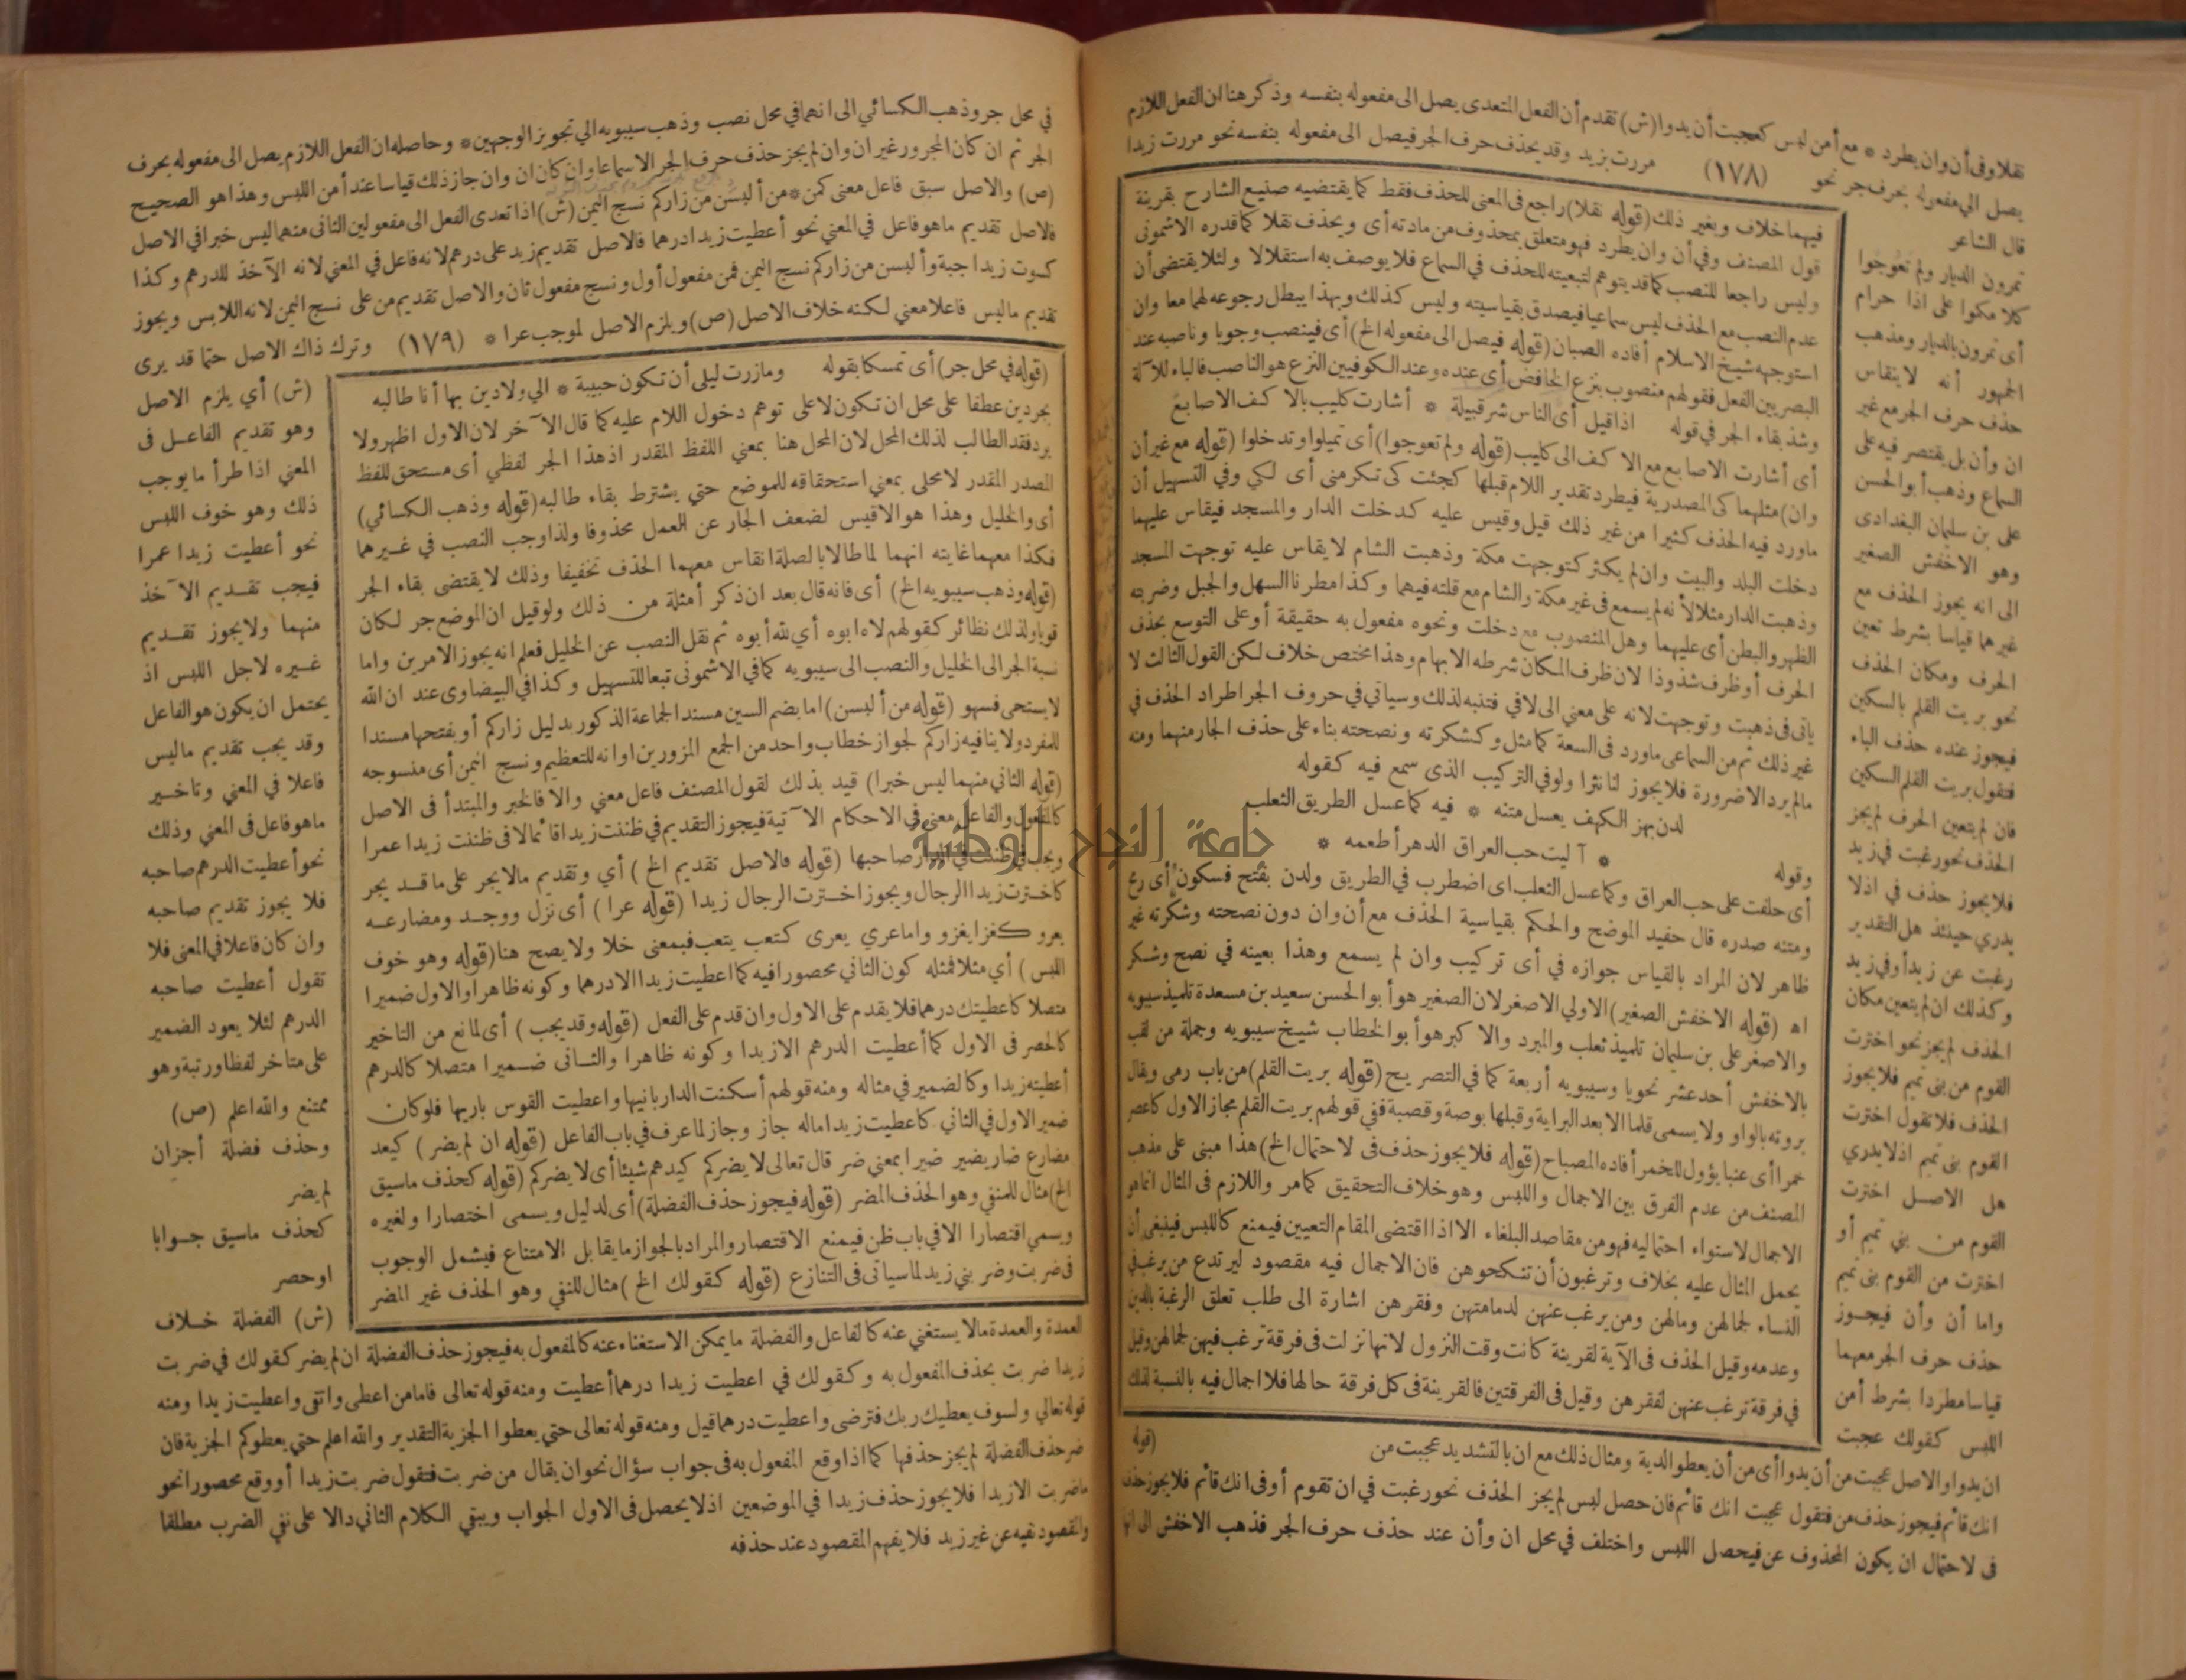 نقلا وفى أن وان يطرد * مع أمن لبس كعجبت أن يدوا (ش) تقدم أن الفعل المتعدى يصل الى مفعوله بنفسه وذكر هنا ان الفعل اللازم
يصل الى مفعوله بحرف جر نحو (١٧٨) مررت بزيد وقد يحذف حرف الجر فيصل الى مفعوله بنفسه نحو مررت زيدا
قال الشاعر
تمرون الديار ولم تعوجوا
كلامكوا على اذا حرام
أى تمرون بالديار ومذهب
الجمهور أنه لا ينقاس
حذف حرف الجر مع غير
ان وأن بل يقتصر فيه على
السماع وذهب أبو الحسن
على بن سلمان البغدادى
وهو الاخفش الصغير
الى انه يجوز الحذف مع
غيرهما قياسا بشرط تعين
الحرف ومكان الحذف
نحو بريت القلم بالسكين
فيجوز عنده حذف الباء
فتقول بريت القلم السكين
فان لم يتعين الحرف لم يجز
الحذف نحو رغبت فى زيد
فلا يجوز حذف فى اذ لا
يدرى حينئذ هل التقدير
رغبت عن زيد أو فى زيد
وكذلك ان لم يتعين مكان
الحذف لم يجز نحو اخترت
القوم من بنى تميم فلا يجوز
الحذف فلا تقول اخترت
القوم بنى تميم اذ لا يدرى
هل الاصل اخترت
القوم من بنى تميم أو
اخترت من القوم بنى تميم
واما أن وأن فيجوز
حذف حرف الجر معهما
قياسا مطردا بشرط أمن
اللبس كقولك عجبت
فيهما خلاف وبغير ذلك (قوله نقلا) راجع فى المعنى للحذف فقط كما يقتضيه صنيع الشارح بقرينة
قول المصنف وفى أن وان يطرد فهو متعلق بمحذوف من مادته أى ويحذف نقلا كما قدره الاشمونى
وليس راجعا للنصب كما قد يتوهم لتبعيته للحذف فى السماع فلا يوصف به استقلالا ولئلا يقتضى أن
عدم النصب مع الحذف ليس سماعيا فيصدق بقياسيته وليس كذلك وبهذا يبطل رجوعه لهما معا وان
استوجهه شيخ الاسلام أفاده الصبان (قوله فيصل الى مفعوله الخ) أى فينصب وجوبا وناصبه عند
البصريين الفعل فقولهم منصوب بنزع الخافض أى عنده وعند الكوفيين النزع هو الناصب فالباء للآلة
وشذ بقاء الجر فى قوله اذا قيل أى الناس شر قبيلة * أشارت كليب بالاكف الاصابع
أى أشارت الاصابع مع الاكف الى كليب (قوله ولم تعوجوا) أى تميلوا وتدخلوا (قوله مع غير أن
وان) مثلهما كى المصدرية فيطرد تقدير اللام قبلها كجئت كى تكرمنى أى لكى وفى التسهيل أن
ماورد فيه الحذف كثيرا من غير ذلك قيل وقيس عليه كدخلت الدار والمسجد فيقاس عليهما
دخلت البلد والبيت وان لم يكثر كتوجهت مكة وذهبت الشام لا يقاس عليه توجهت المسجد
وذهبت الدار مثلا لأنه لم يسمع فى غير مكة والشام مع قلته فيهما وكذا مطرنا السهل والجبل وضربته
الظهر والبطن أى عليهما وهل المنصوب مع دخلت ونحوه مفعول به حقيقة أو على التوسع بحذف
الحرف أو ظرف شذوذا لان ظرف المكان شرطه الابهام وهذا مختص خلاف لكن القول الثالث لا
يأتى فى ذهبت وتوجهت لانه على معنى الى لا فى فتنبه لذلك وسيأتى فى حروف الجر اطراد الحذف فى
غير ذلك ثم من السماعى ماورد فى السعة كما مثل وكشكرته ونصحته بناء على حذف الجار منهما ومنه
مالم يرد الا ضرورة فلا يجوز لنا نثرا ولو فى التركيب الذى سمع فيه كقوله
لدن بهز الكهف يعسل متنه * فيه كما عسل الطريق الثعلب
وقوله * آليت حب العراق الدهر أطعمه *
أى حلفت على حب العراق وكما عسل الثعلب اى اضطرب فى الطريق ولدن بفتح فسكون أى رمح
ومتنه صدره قال حفيد الموضح والحكم بقياسية الحذف مع أن وان دون نصحته وشكرته غير
ظاهر لان المراد بالقياس جوازه فى أى تركيب وان لم يسمع وهذا بعينه فى نصح وشكر
اه (قوله الاخفش الصغير) الاولى الاصغر لان الصغير هو أبو الحسن سعيد بن مسعدة تلميذ سيبويه
والاصغر على بن سليمان تلميذ ثعلب والمبرد والاكبر هو أبو الخطاب شيخ سيبويه وجملة من لقب
بالاخفش أحد عشر نحويا وسيبويه أربعة كما فى التصريح (قوله بريت القلم) من باب رمى ويقال
بروته بالواو ولا يسمى قلما الا بعد البراية وقبلها بوصة وقصبة ففى قولهم بريت القلم مجاز الاول كاعصر
خمرا أى عنبا يؤول للخمر أفاده المصباح (قوله فلا يجوز حذف فى لاحتمال الخ) هذا مبنى على مذهب
المصنف من عدم الفرق بين الاجمال واللبس وهو خلاف التحقيق كما مر واللازم فى المثال انما هو
الاجمال لاستواء احتماليه فهو من مقاصد البلغاء الا اذا اقتضى المقام التعيين فيمنع كاللبس فينبغى أن
يحمل المثال عليه بخلاف وترغبون أن تنكحوهن فان الاجمال فيه مقصود ليرتدع من يرغب فى
النساء لجمالهن ومالهن ومن يرغب عنهن لدمامتهن وفقرهن اشارة الى طلب تعلق الرغبة بالدين
وعدمه وقيل الحذف فى الآية لقرينة كانت وقت النزول لانها نزلت فى فرقة ترغب فيهن لجمالهن وقيل
فى فرقة ترغب عنهن لفقرهن وقيل فى الفرقتين فالقرينة فى كل فرقة حالها فلا اجمال فيه بالنسبة لذلك
(قوله
ان يدوا والاصل عجبت من أن يدوا أى من أن يعطوا الدية ومثال ذلك مع ان بالتشديد عجبت من
انك قائم فيجوز حذف من فتقول عجبت انك قائم فان حصل لبس لم يجز الحذف نحو رغبت فى ان تقوم أو فى انك قائم فلا يجوز حذف
فى لاحتمال ان يكون المحذوف عن فيحصل اللبس واختلف فى محل ان وأن عند حذف حرف الجر فذهب الاخفش الى انها
فى محل جر وذهب الكسائى الى انهما فى محل نصب وذهب سيبويه الى تجويز الوجهين * وحاصله ان الفعل اللازم يصل الى مفعوله بحرف
الجر ثم ان كان المجرور غير ان وان لم يجز حذف حرف الجر الا سماعا وان كان ان وان جاز ذلك قياسا عند أمن اللبس وهذا هو الصحيح
(ص) والاصل سبق فاعل معنى كمن * من ألبسن من زاركم نسج اليمن (ش) اذا تعدى الفعل الى مفعولين الثانى منهما ليس خبرا فى الاصل
فالاصل تقديم ماهو فاعل فى المعنى نحو أعطيت زيدا درهما فالاصل تقديم زيد على درهم لانه فاعل فى المعنى لانه الآخذ للدرهم وكذا
كسوت زيدا جبة وألبسن من زاركم نسج اليمن فمن مفعول أول ونسج مفعول ثان والاصل تقديم من على نسج اليمن لانه اللابس ويجوز
تقديم ماليس فاعلا معنى لكنه خلاف الاصل (ص) ويلزم الاصل لموجب عرا * (١٧٩) وترك ذاك الاصل حتما قد يرى
(ش) أى يلزم الاصل
وهو تقديم الفاعل فى
المعنى اذا طرأ ما يوجب
ذلك وهو خوف اللبس
نحو أعطيت زيدا عمرا
فيجب تقديم الآخذ
منهما ولا يجوز تقديم
غيره لاجل اللبس اذ
يحتمل ان يكون هو الفاعل
وقد يجب تقديم ماليس
فاعلا فى المعنى وتاخير
ماهو فاعل فى المعنى وذلك
نحو أعطيت الدرهم صاحبه
فلا يجوز تقديم صاحبه
وان كان فاعلا فى المعنى فلا
تقول أعطيت صاحبه
الدرهم لئلا يعود الضمير
على متاخر لفظا ورتبة وهو
ممتنع والله اعلم (ص)
وحذف فضلة أجز ان
لم يضر
كحذف ماسيق جوابا
او حصر
(ش) الفضلة خلاف
(قوله فى محل جر) أى تمسكا بقوله وما زرت ليلى أن تكون حبيبة * الى ولا دين بها أنا طالبه
بجر دين عطفا على محل ان تكون لا على توهم دخول اللام عليه كما قال الآخر لان الاول اظهر ولا
يرد فقد الطالب لذلك المحل لان المحل هنا بمعنى اللفظ المقدر اذ هذا الجر لفظى أى مستحق للفظ
المصدر المقدر لا محلى بمعنى استحقاقه للموضع حتى يشترط بقاء طالبه (قوله وذهب الكسائى)
أى والخليل وهذا هو الاقيس لضعف الجار عن العمل محذوفا ولذا وجب النصب فى غيرهما
فكذا معهما غايته انهما لما طالا بالصلة انقاس معهما الحذف تخفيفا وذلك لا يقتضى بقاء الجر
(قوله وذهب سيبويه الخ) أى فانه قال بعد ان ذكر أمثلة من ذلك ولو قيل ان الموضع جر لكان
قويا ولذلك نظائر كقولهم لاه ابوه أى لله أبوه ثم نقل النصب عن الخليل فعلم انه يجوز الامرين واما
نسبة الجر الى الخليل والنصب الى سيبويه كما فى الاشمونى تبعا للتسهيل وكذا فى البيضاوى عند ان الله
لا يستحى فسهو (قوله من ألبسن) اما بضم السين مسندا لجماعة الذكور بدليل زاركم أو بفتحها مسندا
للمفرد ولا ينافيه زاركم لجواز خطاب واحد من الجمع المزورين اوانه للتعظيم ونسج اليمن أى منسوجه
(قوله الثانى منهما ليس خبرا) قيد بذلك لقول المصنف فاعل معنى والا فالخبر والمبتدأ فى الاصل
كالمفعول والفاعل معنى فى الاحكام الآتية فيجوز التقديم فى ظننت زيدا قائما لا فى ظننت زيدا عمرا
ويجب فى ظننت فى الدار صاحبها (قوله فالاصل تقديم الخ) أى وتقديم مالا يجر على ما قد يجر
كاخترت زيدا الرجال ويجوز اخترت الرجال زيدا (قوله عرا) أى نزل ووجد ومضارعه
يعرو كغزا يغزو واما عرى يعرى كتعب يتعب فبمعنى خلا ولا يصح هنا (قوله وهو خوف
اللبس) أى مثلا فمثله كون الثانى محصورا فيه كما اعطيت زيدا الا درهما وكونه ظاهرا والاول ضميرا
متصلا كاعطيتك درهما فلا يقدم على الاول وان قدم على الفعل (قوله وقد يجب) أى لمانع من التاخير
كالحصر فى الاول كما أعطيت الدرهم الا زيدا وكونه ظاهرا والثانى ضميرا متصلا كالدرهم
أعطيته زيدا وكالضمير فى مثاله ومنه قولهم أسكنت الدار بانيها واعطيت القوس باريها فلو كان
ضمير الاول فى الثانى كاعطيت زيدا ماله جاز وجاز لما عرف فى باب الفاعل (قوله ان لم يضر) كيعد
مضارع ضار يضير ضيرا بمعنى ضر قال تعالى لا يضركم كيدهم شيئا أى لا يضركم (قوله كحذف ماسيق
الخ) مثال للمنفى وهو الحذف المضر (قوله فيجوز حذف الفضلة) أى لدليل ويسمى اختصارا ولغيره
ويسمى اقتصارا الا فى باب ظن فيمنع الاقتصار والمراد بالجواز مايقابل الامتناع فيشمل الوجوب
فى ضربت وضربنى زيد لما سيأتى فى التنازع (قوله كقولك الخ) مثال للنفى وهو الحذف غير المضر
العمدة والعمدة مالا يستغنى عنه كالفاعل والفضلة مايمكن الاستغناء عنه كالمفعول به فيجوز حذف الفضلة ان لم يضر كقولك فى ضربت
زيدا ضربت بحذف المفعول به وكقولك فى اعطيت زيدا درهما أعطيت ومنه قوله تعالى فاما من اعطى واتقى واعطيت زيدا ومنه
قوله تعالى ولسوف يعطيك ربك فترضى واعطيت درهما قيل ومنه قوله تعالى حتى يعطوا الجزية التقدير والله اعلم حتى يعطوكم الجزية فان
ضر حذف الفضلة لم يجز حذفها كما اذا وقع المفعول به فى جواب سؤال نحو ان يقال من ضربت فتقول ضربت زيدا أو وقع محصورا نحو
ماضربت الا زيدا فلا يجوز حذف زيدا فى الموضعين اذ لا يحصل فى الاول الجواب ويبقى الكلام الثانى دالا على نفى الضرب مطلقا
والمقصود نفيه عن غير زيد فلا يفهم المقصود عند حذفه
جامعة النجاح الوطنية